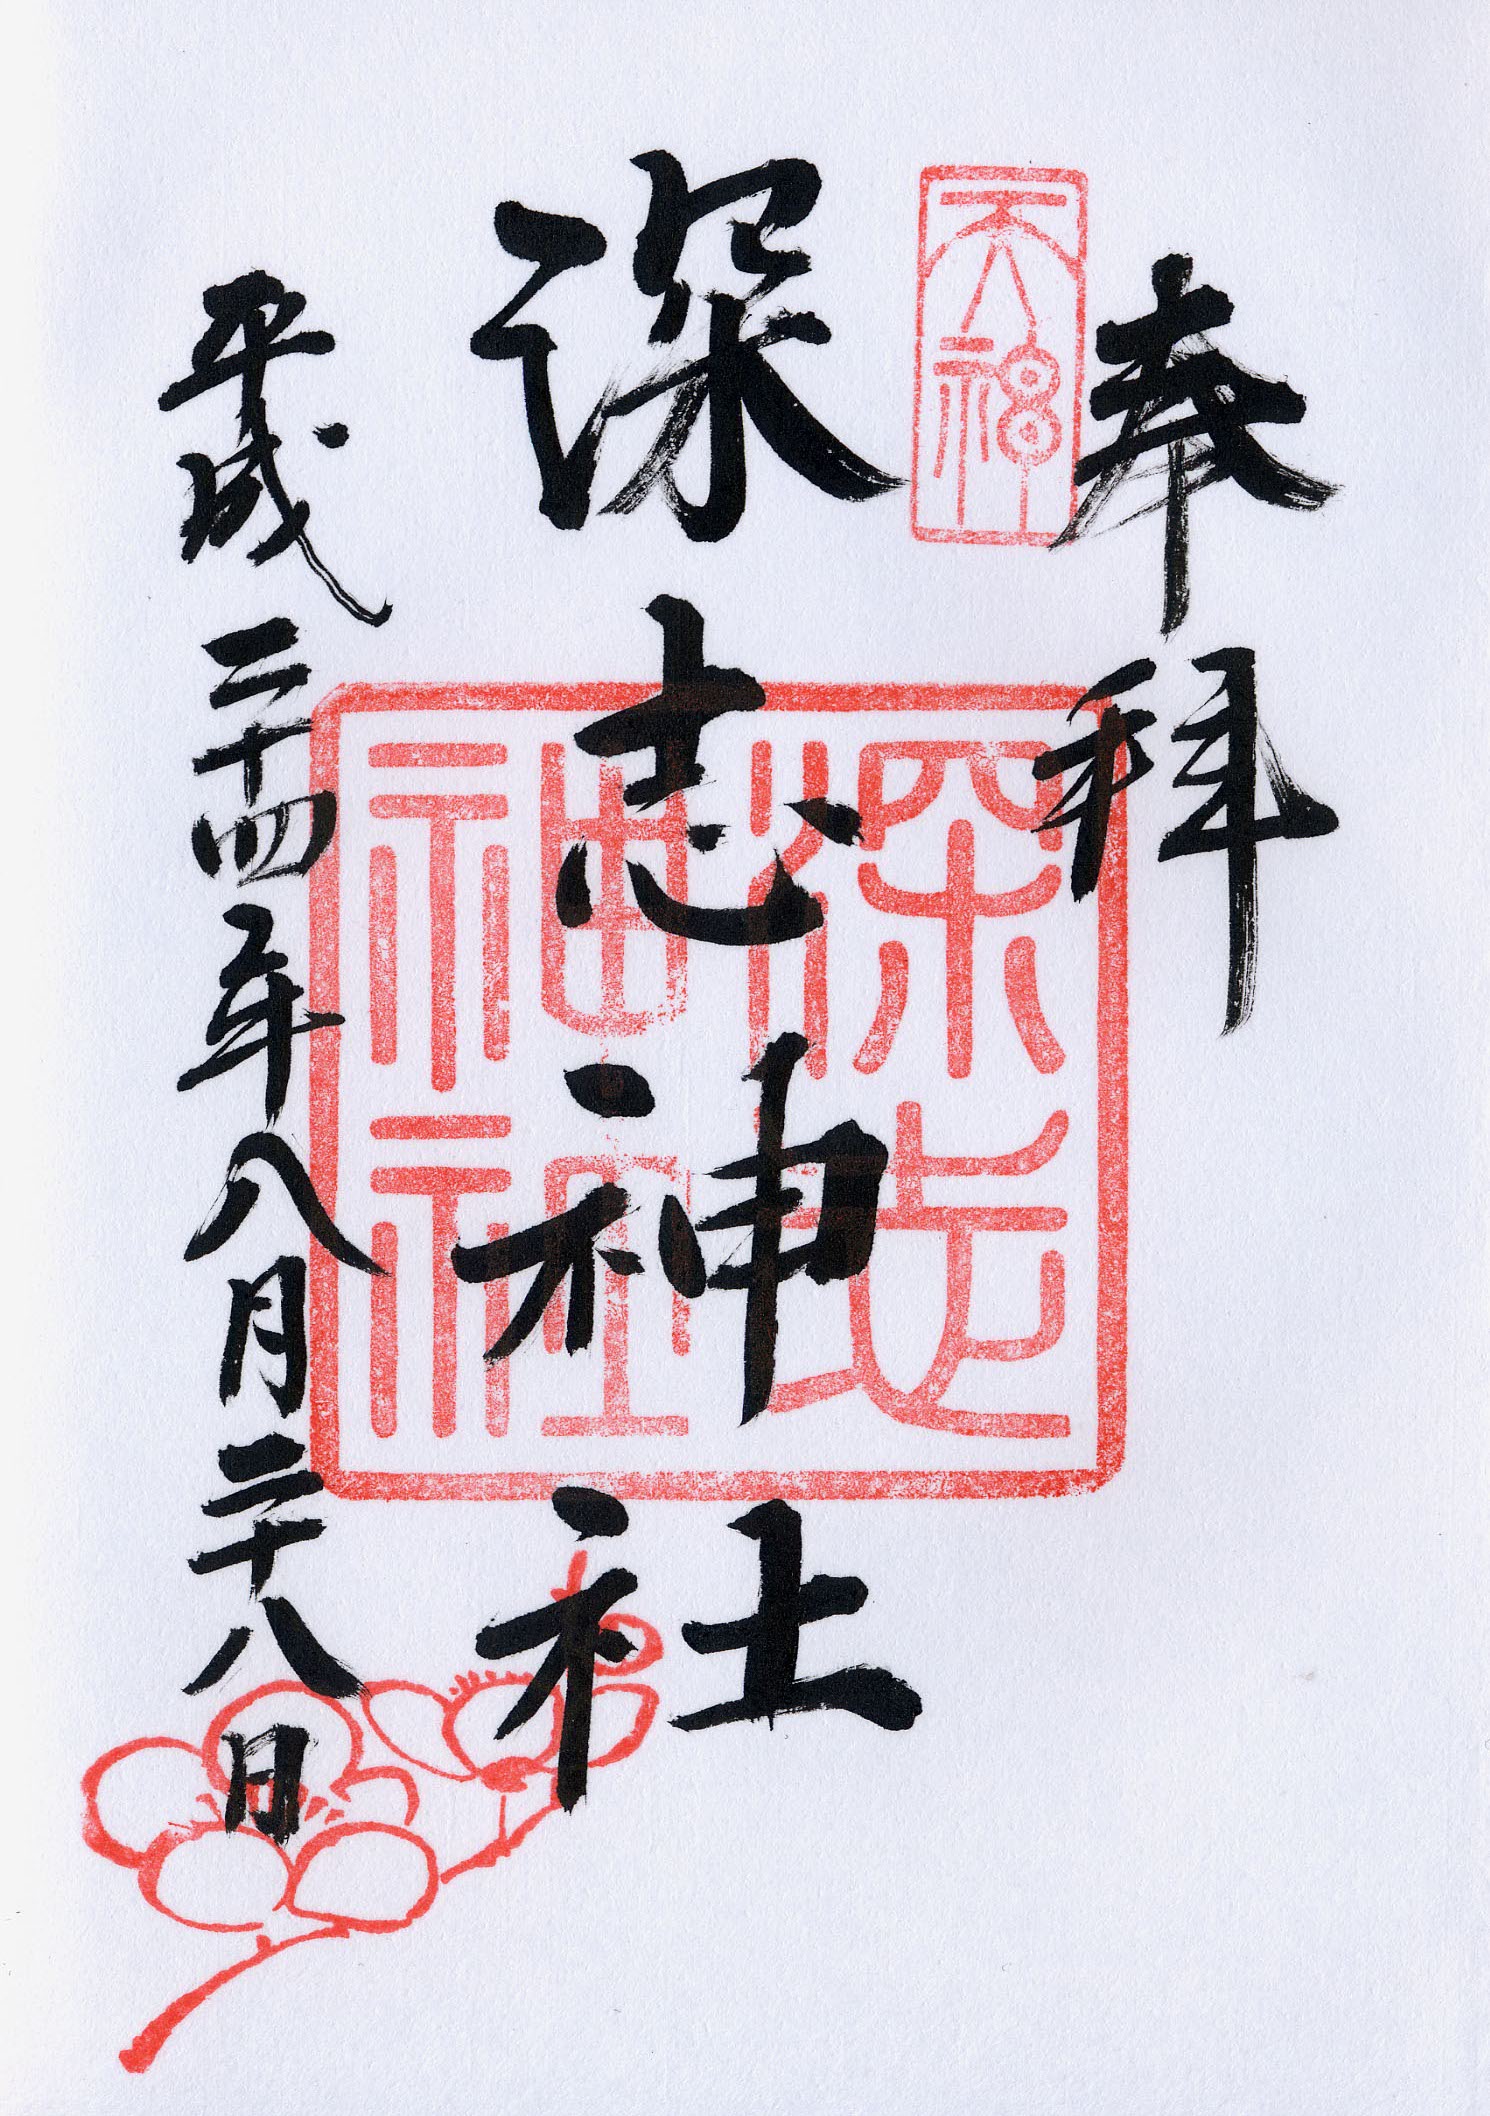 奉拝
天神
深志神社
深志神社
平成二十四年八月二十八日